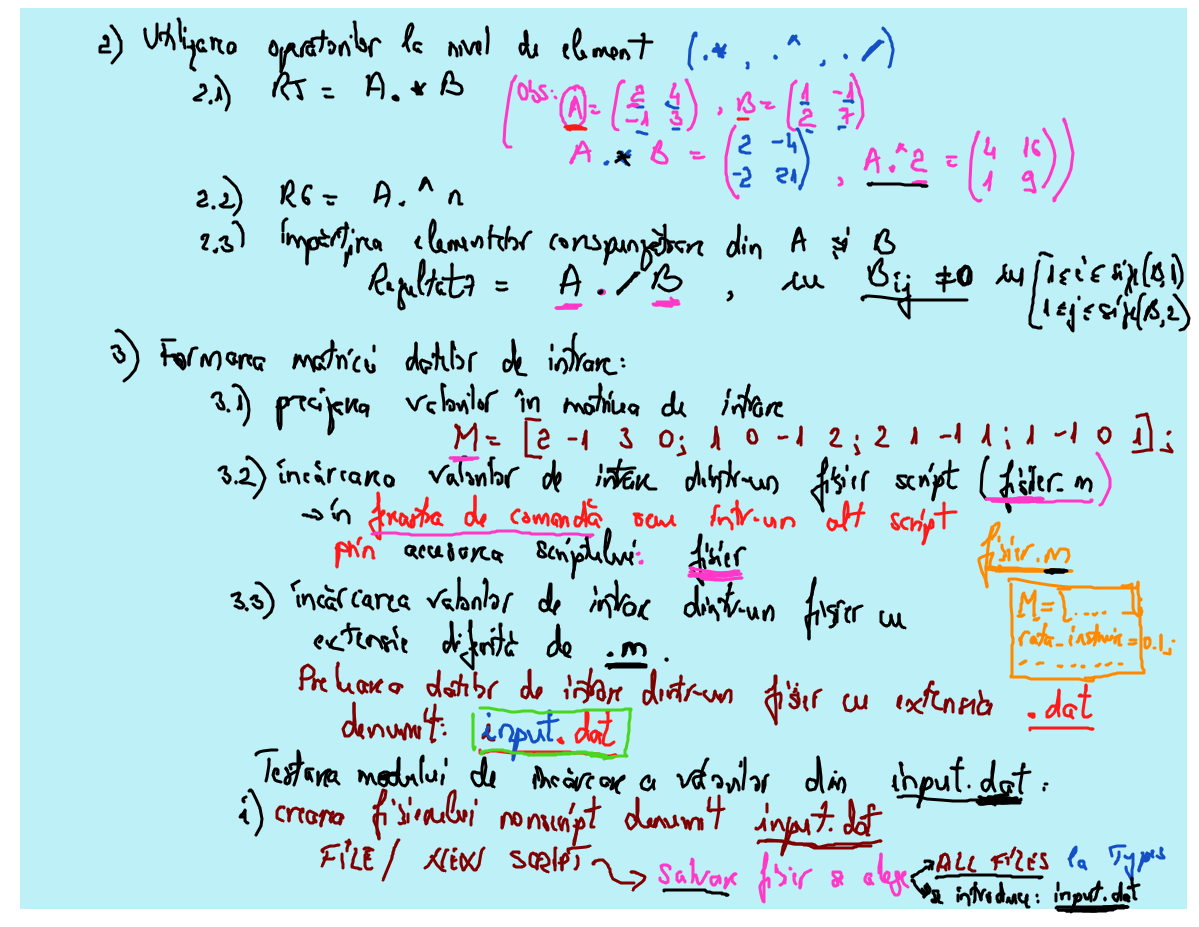 2) Utilizarea operatorilor la nivel de element (.*, .^, ./)
2.1) R5 = A.*B
(Obs: A = (2 4 -1 3), B = (1 -1 2 7)
A.*B = (2 -4 -2 21), A.^2 = (4 16 1 9))
2.2) R6 = A.^n
2.3) Împărțirea elementelor corespunzătoare din A și B
Rezultat7 = A./B, cu Bij ≠ 0 cu [1≤i≤size(B,1)
1≤j≤size(B,2)
3) Formarea matricii datelor de intrare:
3.1) precizarea valorilor în matricea de intrare
M = [2 -1 3 0; 1 0 -1 2; 2 1 -1 1; 1 -1 0 1];
3.2) încărcarea valorilor de intrare dintr-un fișier script (fișier.m)
→ în fereastra de comandă sau într-un alt script
prin accesarea scriptului: fișier
fișier.m
M = [....]
rata_instruire = 0.1;
.......
3.3) încărcarea valorilor de intrare dintr-un fișier cu
extensie diferită de .m.
Preluarea datelor de intrare dintr-un fișier cu extensia .dat
denumit: input.dat
Testarea modului de încărcare a valorilor din input.dat:
i) crearea fișierului nonscript denumit input.dat
FILE / NEW SCRIPT → Salvare fișier se alege → ALL FILES la Types
→ se introduce: input.dat